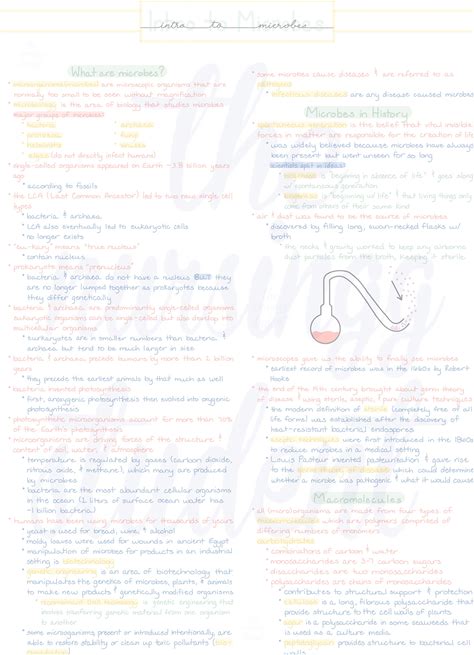 intro to microbes
What are microbes?
* microorganisms (microbes) are microscopic organisms that are
normally too small to be seen without magnification
* microbiology is the area of biology that studies microbes
major groups of microbes:
* bacteria * archaea
* protozoa * fungi
* helminths * viruses
* algae (do not directly infect humans)
* single-celled organisms appeared on Earth ~3.8 billion years
ago
* according to fossils
* the LCA (Last Common Ancestor) led to two new single-cell
types
* bacteria & archaea
* LCA also eventually led to eukaryotic cells
* no longer exists
* "eu-kary" means "true nucleus"
* contain nucleus
* prokaryote means "prenucleus"
* bacteria & archaea do not have a nucleus but they are
no longer lumped together as prokaryotes because
they differ genetically
* bacteria & archaea are predominantly single-celled organisms
eukaryotic organisms can be single-celled but also develop into
multicellular organisms
* eurkaryotes are in smaller numbers than bacteria &
archaea but tend to be much larger in size
* bacteria & archaea precede humans by more than 2 billion
years
* they precede the earliest animals by that much as well
* bacteria invented photosynthesis
* first, anoxygenic photosynthesis then evolved into oxygenic
photosynthesis
* photosynthetic microorganisms account for more than 50% of
the Earth's photosynthesis
* microorganisms are driving forces of the structure &
content of soil, water, & atmosphere
* temperature is regulated by gases (carbon dioxide,
nitrous oxide, & methane), which many are produced
by microbes
* bacteria are the most abundant cellular organisms
in the ocean (2 liters of surface ocean water has
~1 billion bacteria)
* humans have been using microbes for thousands of years
* yeast is used for bread, wine, & alcohol
* moldy loaves were used for wounds in ancient Egypt
* manipulation of microbes for products in an industrial
setting is biotechnology
* genetic engineering is an area of biotechnology that
manipulates the genetics of microbes, plants, & animals
to make new products & genetically modified organisms
* recombinant DNA technology is genetic engineering that
involves transferring genetic material from one organism
to another
* some microorganisms present or introduced intentionally are
able to restore stability or clean up toxic pollutants
* some microbes cause diseases & are referred to as
pathogens
* infectious diseases are any disease caused microbes
Microbes in History
* spontaneous generation is the belief that vital invisible
forces in matter are responsible for the creation of life
* was widely believed because microbes have always
been present but went unseen for so long
scientists split in ideas:
* abiogenesis is "beginning in absence of life" & goes along
w/ spontaneous generation
* biogenesis is "beginning of life" & that living things only
come from others of their same kind
* air & dust was found to be the source of microbes
* discovered by filling long, swan-necked flasks w/
broth
* the necks & gravity worked to keep any airborne
dust particles from the broth, keeping it sterile
* microscopes gave us the ability to finally see microbes
* earliest record of microbes was in the 1660s by Robert
Hooke
* the end of the 19th century brought about germ theory
of disease & using sterile, aseptic, & pure culture techniques
* the modern definition of sterile (completely free of all life
forms) was established after the discovery of
heat-resistant bacterial endospores
* aseptic techniques were first introduced in the 1860s
to reduce microbes in a medical setting
* Louis Pasteur invented pasteurization & gave rise
to the germ theory of disease which could determine
whether a microbe was pathogenic & what disease it
caused
Macromolecules
* all (micro)organisms are made from four types of
macromolecules which are polymers comprised of
different numbers of monomers
carbohydrates
* combinations of carbon & water
* monosaccharides are 3-7 carbon sugars
* disaccharides are two monosaccharides
* polysaccharides are chains of monosaccharides
* contributes to structural support & protection
* cellulose is a long, fibrous polysaccharide that
provide structure to the cell walls of plants
* agar is a polysaccharide from seaweeds that
provide structure & is used as culture media